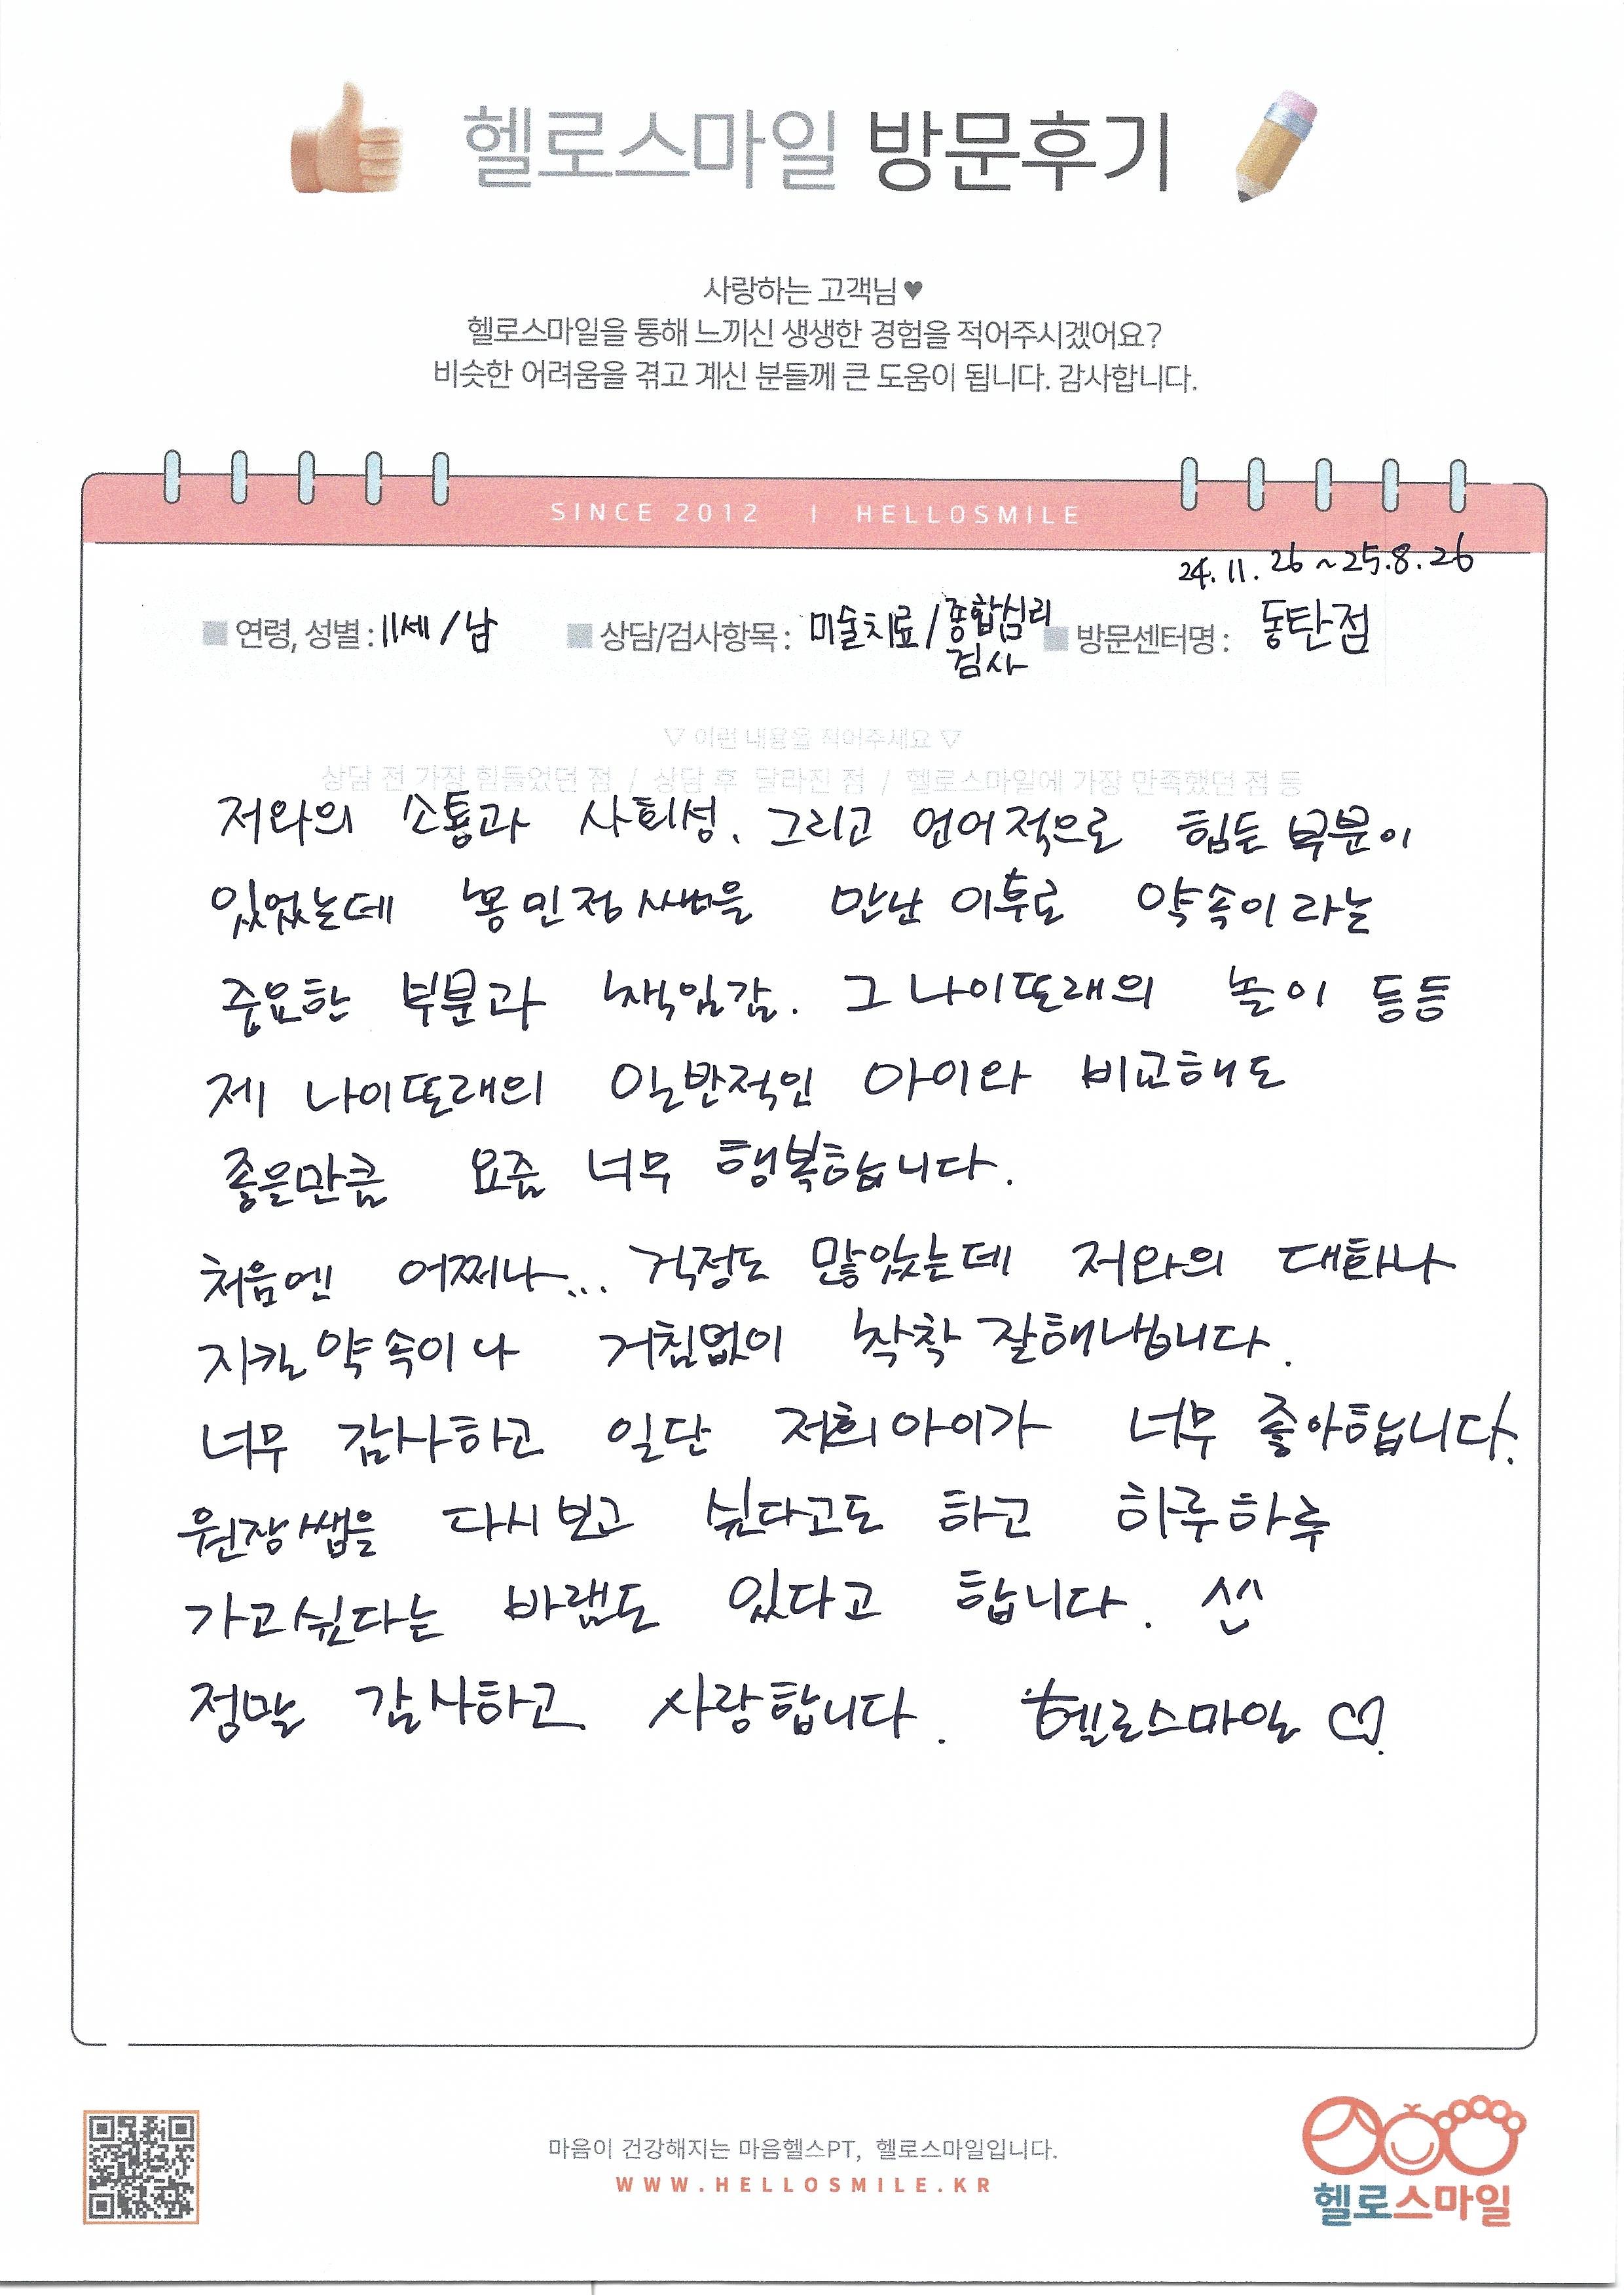 헬로스마일 방문후기
사랑하는 고객님♥
헬로스마일을 통해 느끼신 생생한 경험을 적어주시겠어요?
비슷한 어려움을 겪고 계신 분들께 큰 도움이 됩니다. 감사합니다.
SINCE 2012 | HELLOSMILE
24.11.26~25.8.26
■ 연령, 성별 : 11세/남 ■ 상담/검사항목 : 미술치료/종합심리검사 ■ 방문센터명 : 동탄점
▽ 이런 내용을 적어주세요 ▽
상담 전 가장 힘들었던 점 / 상담 후 달라진 점 / 헬로스마일에 가장 만족했던 점 등
저와의 소통과 사회성. 그리고 언어적으로 힘든 부분이
있었는데 민정쌤을 만난 이후로 약속이라는
중요한 부분과 책임감. 그 나이또래의 놀이 등등
제 나이또래의 일반적인 아이와 비교해도
좋을만큼 요즘 너무 행복합니다.
처음엔 어쩌나... 걱정도 많았는데 저와의 대화나
지킬 약속이나 거침없이 착착 잘해냅니다.
너무 감사하고 일단 저희아이가 너무 좋아합니다.
원장쌤을 다시보고 싶다고도 하고 하루하루
가고싶다는 바램도 있다고 합니다. ^^
정말 감사하고 사랑합니다. 헬로스마일 ♡.
마음이 건강해지는 마음헬스PT, 헬로스마일입니다.
WWW.HELLOSMILE.KR
헬로스마일